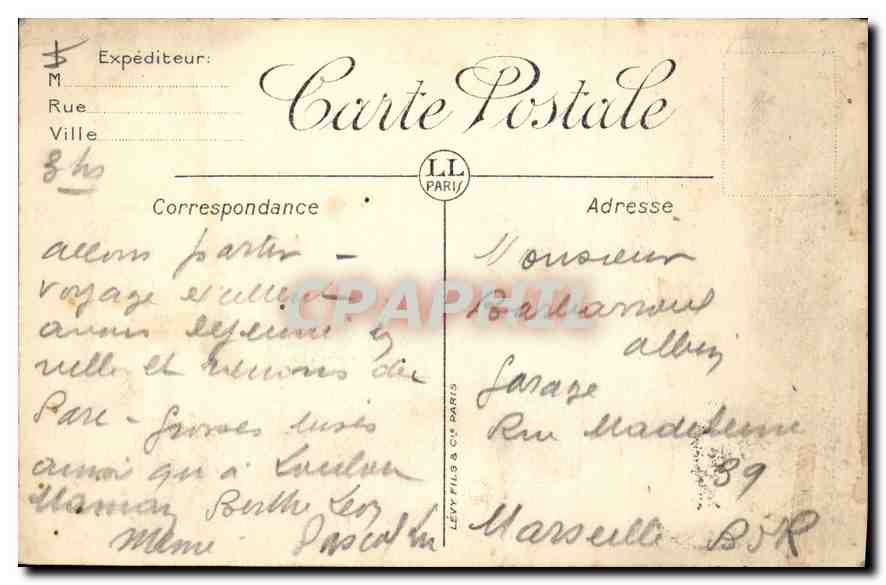 Expéditeur:
M
Rue
Ville
3 hs
Carte Postale
LL
PARIS
Correspondance
allons partir -
voyage excellent
avons déjeuné en
ville et venons du
Parc - Grosses bises
ainsi qu'à Loulou
Maman Berthe Léon
Mémé Pascal
LÉVY FILS & Cie PARIS
Adresse
Monsieur
Albin
Garage
Rue Madeleine
39
Marseille B d R
CPAPHIL